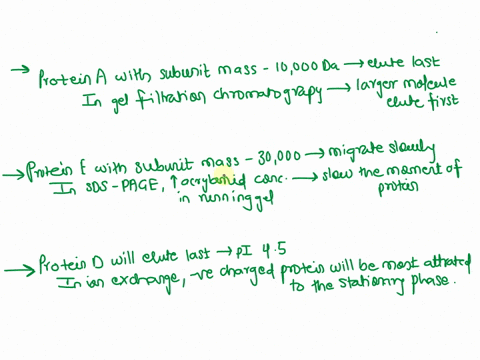 → Protein A with subunit mass - 10,000 Da → elute last
In gel filtration chromatograpy → larger molecule
elute first
→ Protein E with subunit mass - 30,000 → migrate slowly
In SDS-PAGE, ↑ acrylamid conc. → slow the moment of
in running gel protein
→ Protein D will elute last → pI 4.5
In ion exchange, -ve charged protein will be most attrated
to the stationry phase.